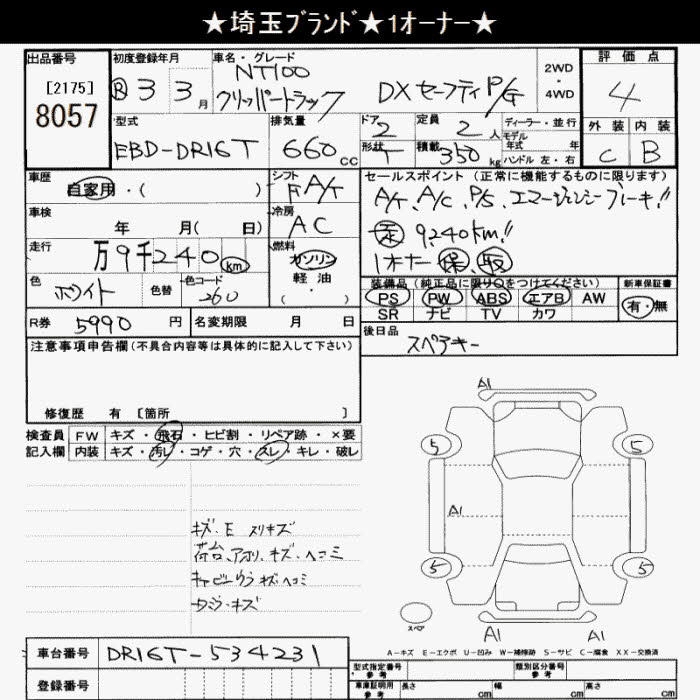 ★埼玉ブランド★1オーナー★
出品番号 [2175] 8057
初度登録年月 R 3 3月
車名・グレード NT100 クリッパートラック DX セーフティP/G
2WD・4WD
評価点 4
外装 C 内装 B
型式 EBD-DR16T
排気量 660cc
ドア 2 形状 T
定員 2人 積載 350kg
ディーラー・並行
モデル年式 年式
ハンドル 左・右
車歴 自家用・( )
シフト F A/T
車検 年 月( 日)
冷房 AC
走行 万9千240km
燃料 ガソリン 軽油 ( )
色 ホワイト 色替 色コード 260
R券 5990円 名変期限 月 日
セールスポイント (正常に機能するものに限ります)
A/T、A/C、P/S、エマージェンシーブレーキ!!
走 9,240km!!
1オナー 保、取
装備品(純正品に限り○をつけてください)
PS PW ABS エアB AW
SR ナビ TV カワ
新車保証書 有・無
後日品 スペアキー
注意事項申告欄(不具合内容等は具体的に記入して下さい)
修復歴 有 [箇所 ]
検査員記入欄
FW キズ・飛石・ヒビ割・リペア跡・×要
内装 キズ・汚レ・コゲ・穴・スレ・キレ・破レ
キズ、E スリキズ
荷台、アオリ、キズ、ヘコミ
キャビンウラ キズ ヘコミ
A1
5 5
A1
5 5
スペア
A1 A1
A-キズ E-エクボ U-凹み W-補修跡 S-サビ C-腐食 XX-交換済
車台番号 DR16T-534231
登録番号
型式指定番号 参考
類別区分番号 参考
車庫証明用 参考 長さ cm 幅 cm 高さ cm